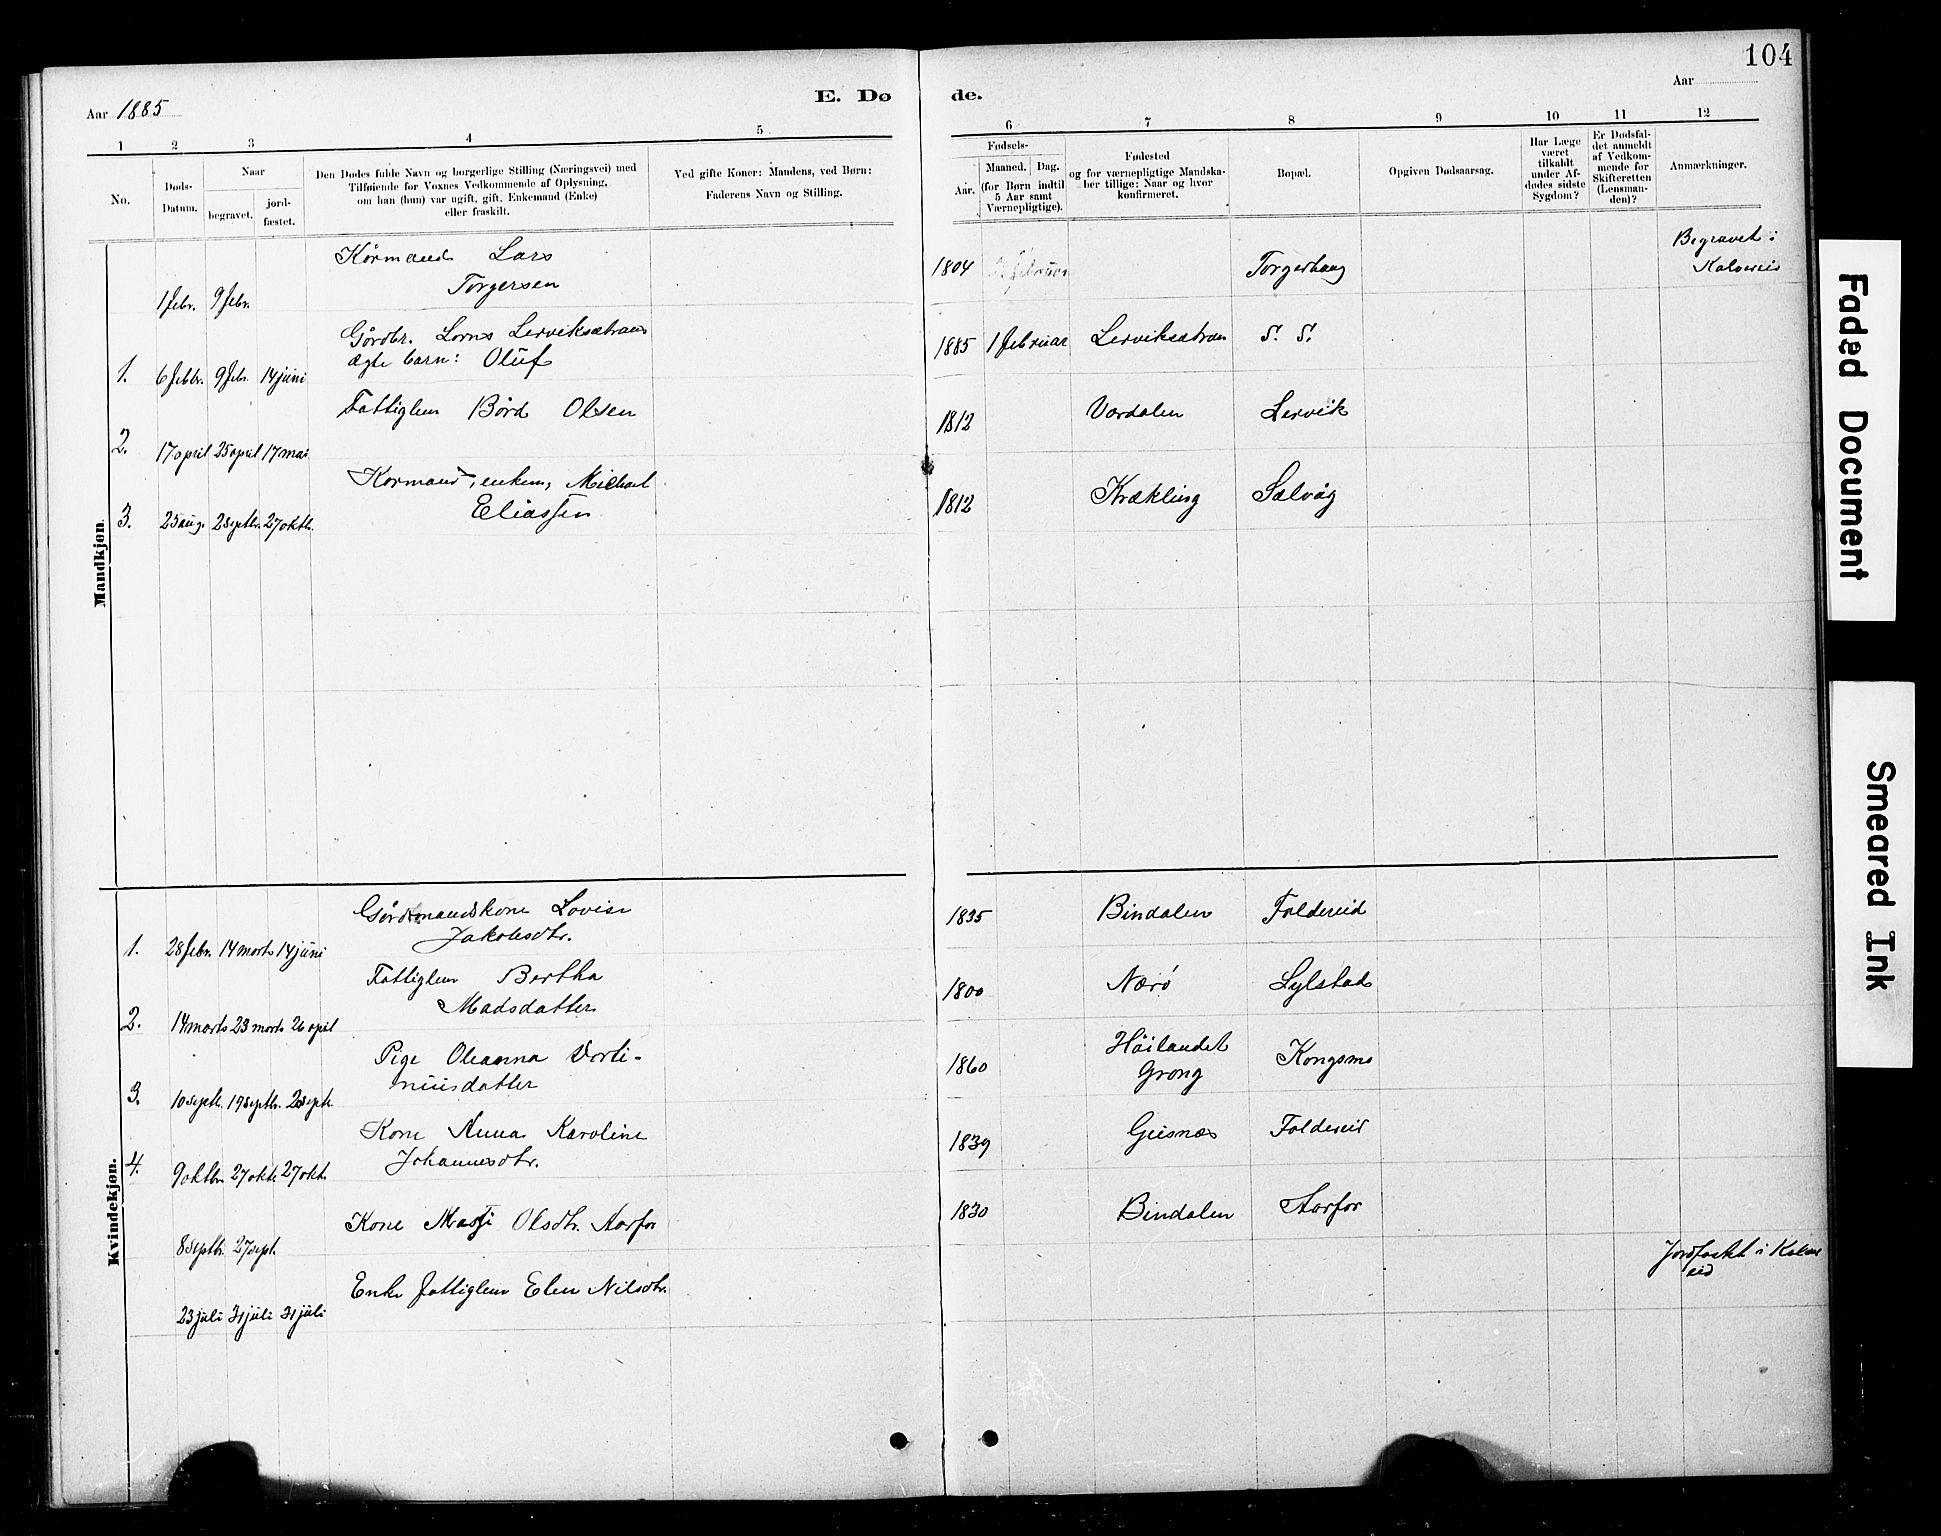 104
Aar 1885
E. Dø de.
Aar
1 2 3 4 5 6 7 8 9 10 11 12
No.
Døds-
Datum.
Naar
begravet.
jord-
fæstet.
Den Dødes fulde Navn og borgerlige Stilling (Næringsvei) med
Tilføiende for Voxnes Vedkommende af Oplysning,
om han (hun) var ugift, gift, Enkemand (Enke)
eller fraskilt.
Ved gifte Koner: Mandens, ved Børn:
Faderens Navn og Stilling.
Fødsels-
Aar.
Maaned. Dag.
(for Børn indtil
5 Aar samt
Værnepligtige).
Fødested
og for værnepligtige Mandska-
ber tillige: Naar og hvor
konfirmeret.
Bopæl.
Opgiven Dødsaarsag.
Har Læge
været
tilkaldt
under Af-
dødes sidste
Sygdom?
Er Dødsfal-
det anmeldt
af Vedkom-
mende for
Skifteretten
(Lensman-
den)?
Anmærkninger.
Mandkjøn.
Kårmand Lars
Torgersen
1 febr. 9 febr.
1804 Torgerhaug
Begravet i
Kolvereid
Gårdbr. Lorns Lerviksætrans
ægte barn: Oluf
1. 6 febbr. 9 febr. 14 juni
1885 1 februar Lerviksætran S. S.
Fattiglem Bård Olsen
2. 17 april 25 april 17 mai
1812 Værdalen Lervik
Kårmand, enkem, Michael
Eliassen
3. 25 aug. 2 septbr. 27 oktb.
1812 Krækling Salvåg
Kvindekjøn.
Gårdmandskone Lovise
Jakobsdtr.
1. 28 febr. 14 marts 14 juni
1835 Bindalen Foldereid
Fattiglem Bertha
Madsdatter
2. 14 marts 23 marts 26 april
1800 Nærö Sylstad
Pige Oleanna Morti-
niusdatter
3. 10 septb. 19 septbr. 20 septb.
1860 Höilandet
Grong
Kongsmo
Kone Anna Karoline
Johannesdtr.
4. 9 oktbr. 27 oktb 27 okt.
1839 Geisnæs Foldereid
Kone Masi Olsdtr. Aarfor
8 septbr. 27 sept.
1830 Bindalen Aarfor
Enke fattiglem Elen Nilsdtr.
23 juli 31 juli 31 juli
Jordfæstet i Kolve
reid
Faded Document
Smeared Ink